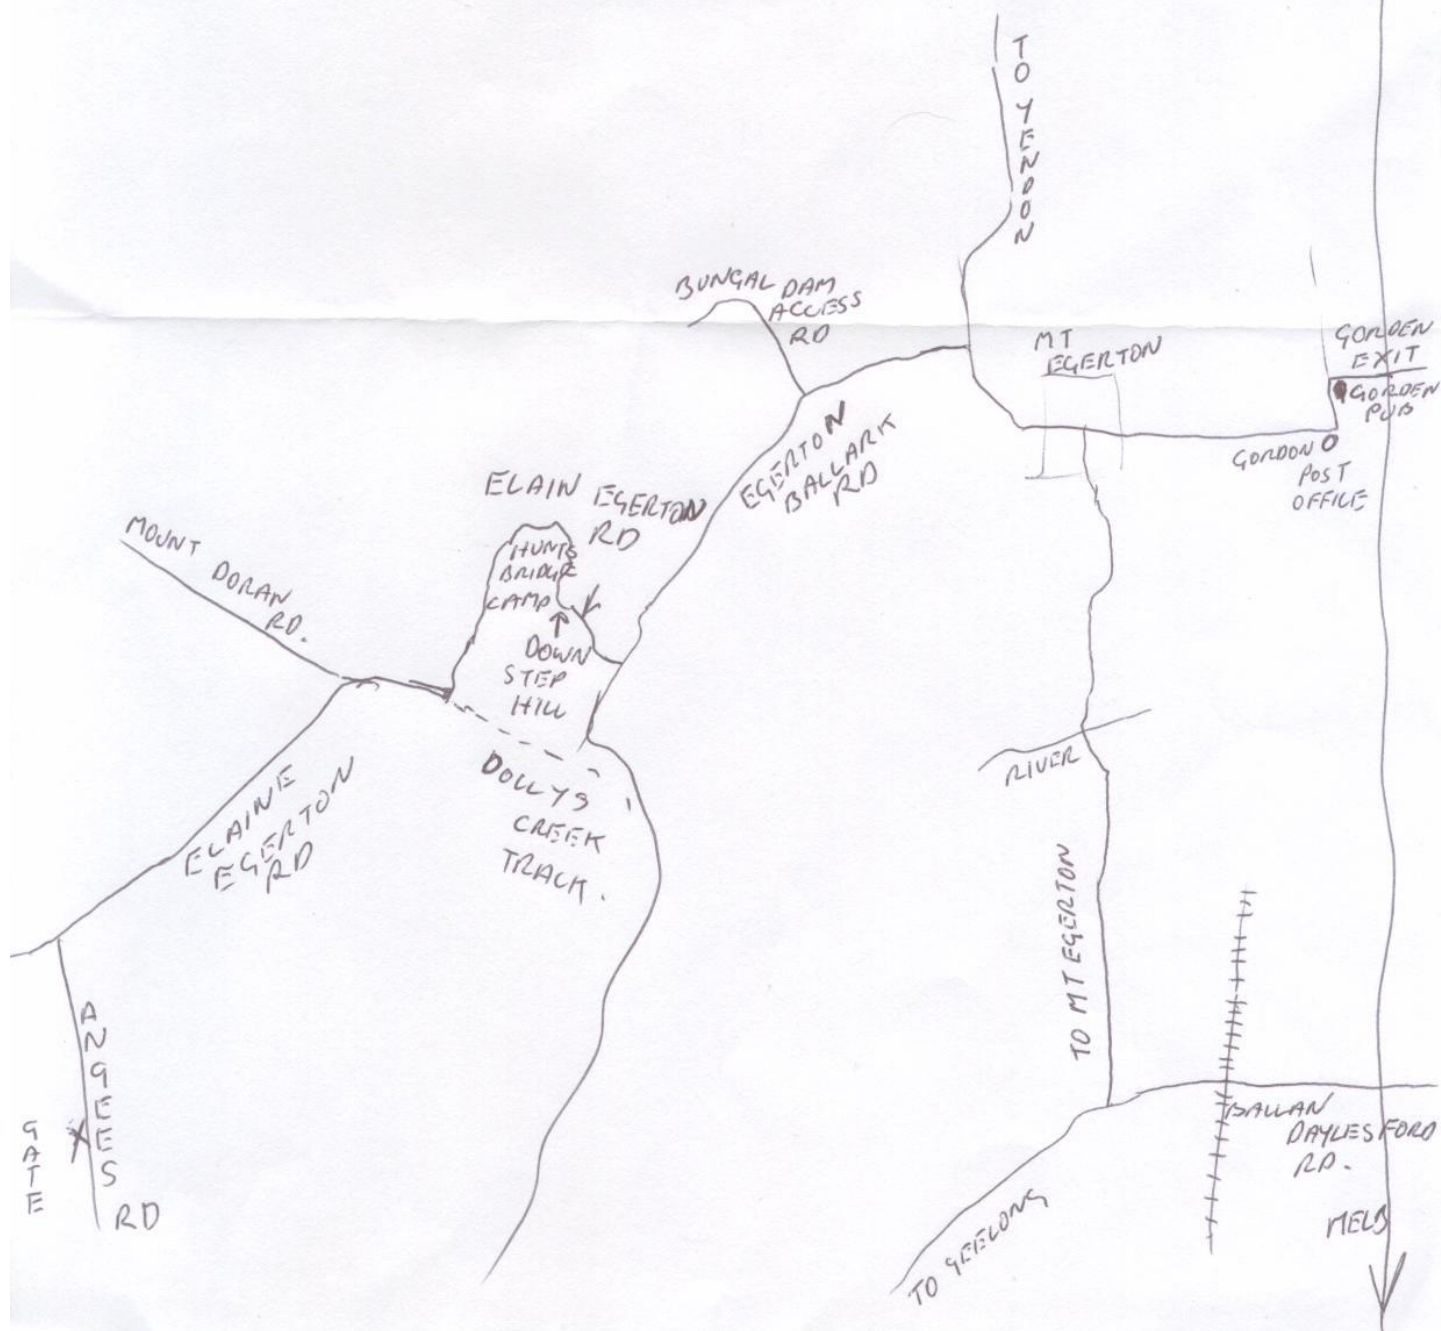 TO YENDON
BUNGAL DAM
ACCESS
RD
MT
EGERTON
GORDEN
EXIT
GORDEN
PUB
GORDON
POST
OFFICE
EGERTON
BALLARK
RD
ELAIN EGERTON
RD
HUNTS
BRIDGE
CAMP
MOUNT
DORAN
RD.
DOWN
STEP
HILL
DOLLYS
CREEK
TRACK.
RIVER
ELAINE
EGERTON
RD
TO MT EGERTON
ANGEES
RD
GATE
BALLAN
DAYLESFORD
RD.
TO GEELONG
MELB